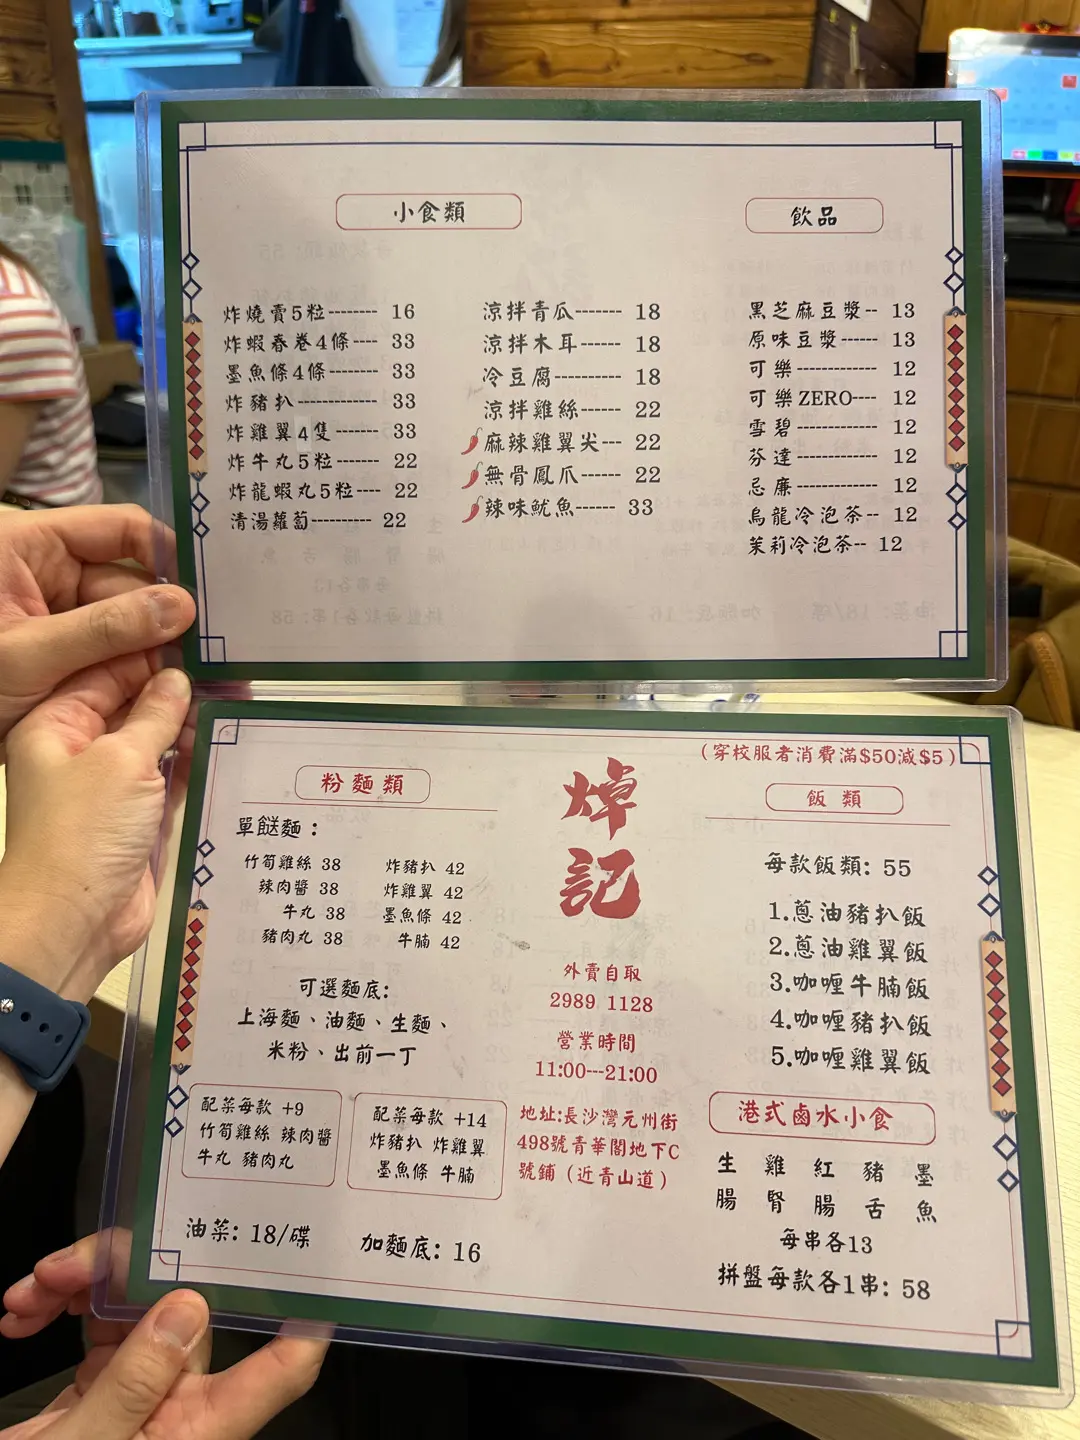 小食類
炸燒賣5粒-------- 16
炸蝦春卷4條---- 33
墨魚條4條------- 33
炸豬扒----------- 33
炸雞翼4隻------- 33
炸牛丸5粒------- 22
炸龍蝦丸5粒---- 22
清湯蘿蔔--------- 22
涼拌青瓜------- 18
涼拌木耳------ 18
冷豆腐---------- 18
涼拌雞絲------ 22
麻辣雞翼尖--- 22
無骨鳳爪------ 22
辣味魷魚------ 33
飲品
黑芝麻豆漿-- 13
原味豆漿------ 13
可樂------------- 12
可樂ZERO---- 12
雪碧------------- 12
芬達------------- 12
忌廉------------- 12
烏龍冷泡茶-- 12
茉莉冷泡茶-- 12
(穿校服者消費滿$50減$5)
粉麵類
單餸麵：
竹筍雞絲 38
辣肉醬 38
牛丸 38
豬肉丸 38
炸豬扒 42
炸雞翼 42
墨魚條 42
牛腩 42
可選麵底:
上海麵、油麵、生麵、
米粉、出前一丁
配菜每款 +9
竹筍雞絲 辣肉醬
牛丸 豬肉丸
配菜每款 +14
炸豬扒 炸雞翼
墨魚條 牛腩
油菜: 18/碟
加麵底: 16
焯記
外賣自取
2989 1128
營業時間
11:00---21:00
地址:長沙灣元州街
498號青華閣地下C
號鋪（近青山道）
飯類
每款飯類: 55
1.蔥油豬扒飯
2.蔥油雞翼飯
3.咖喱牛腩飯
4.咖喱豬扒飯
5.咖喱雞翼飯
港式鹵水小食
生腸 雞腎 紅腸 豬舌 墨魚
每串各13
拼盤每款各1串: 58